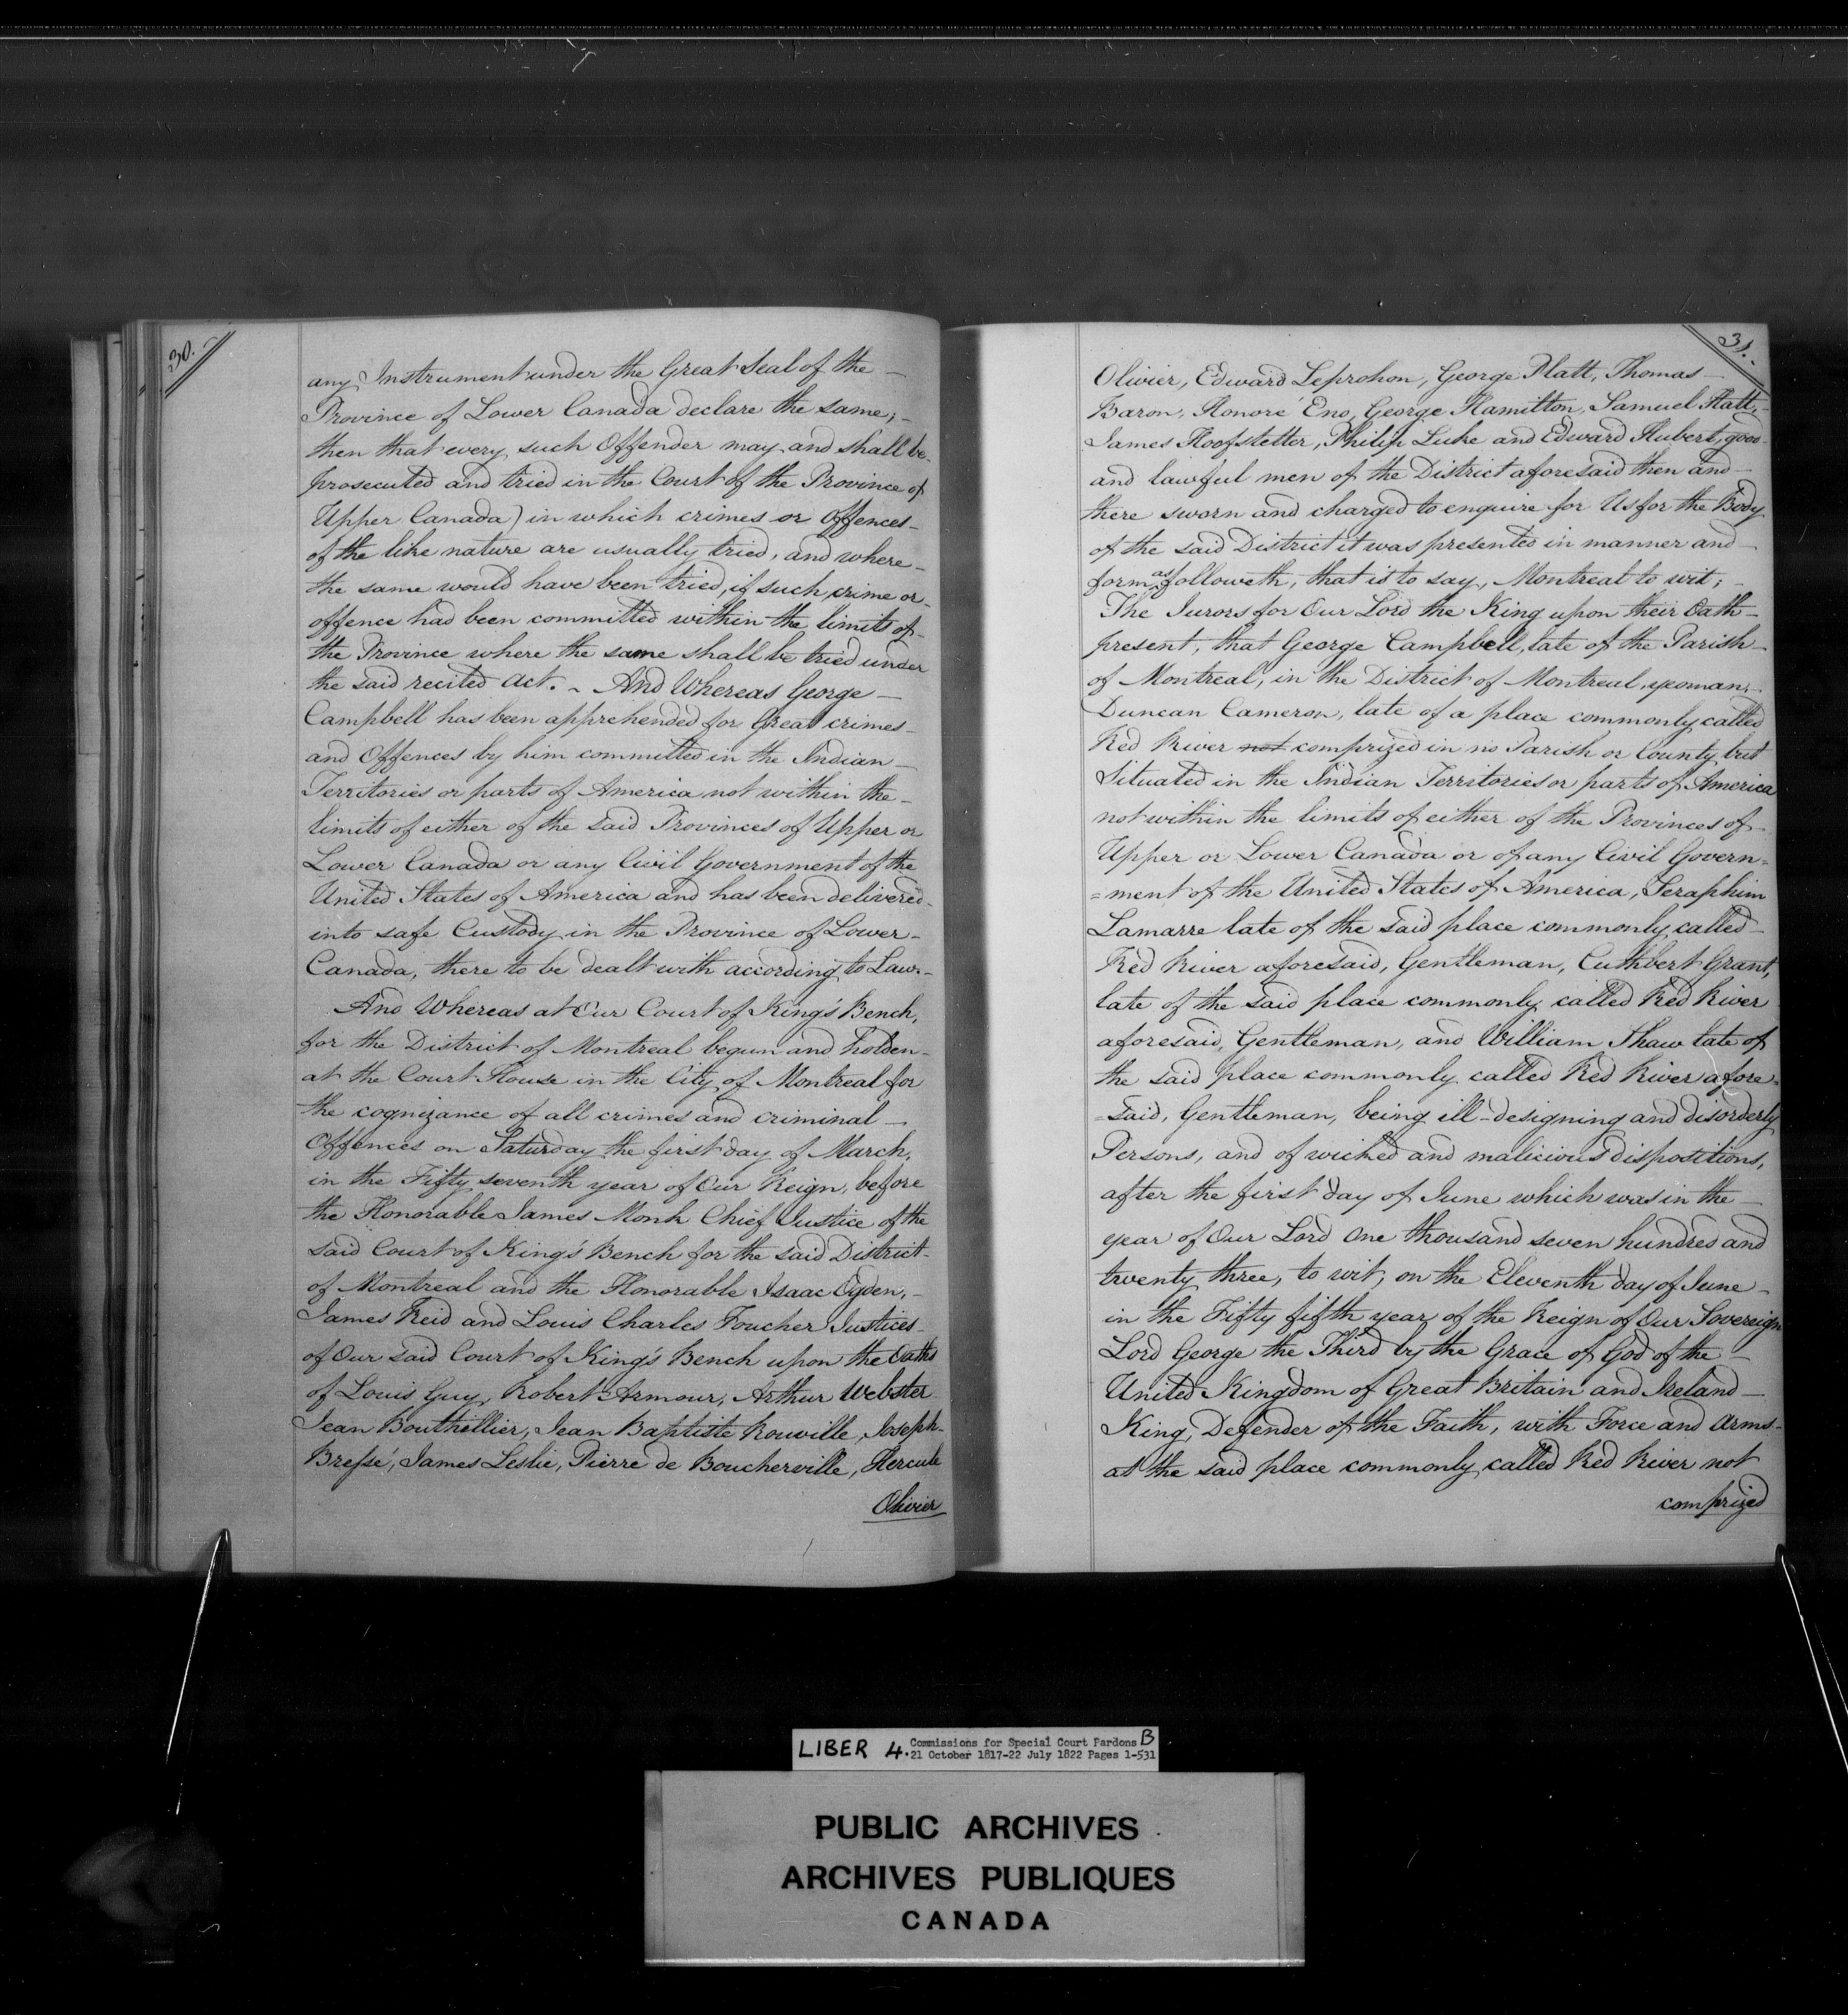 30.
any Instrument under the Great Seal of the –
Province of Lower Canada declare the same; –
then that every such Offender may and shall be –
prosecuted and tried in the Court of the Province of
Upper Canada) in which crimes or Offences –
of the like nature are usually tried, and where –
the same would have been tried, if such crime or –
offence had been committed within the limits of –
the Province where the same shall be tried under
the said recited Act. ~ And Whereas George –
Campbell has been apprehended for Great crimes –
and Offences by him committed in the Indian –
Territories or parts of America not within the –
limits of either of the said Provinces of Upper or
Lower Canada or any Civil Government of the
United States of America and has been delivered –
into safe Custody in the Province of Lower –
Canada, there to be dealt with according to Law. –
And Whereas at Our Court of King's Bench,
for the District of Montreal begun and holden –
at the Court House in the City of Montreal for
the cognizance of all crimes and criminal –
Offences on Saturday the first day of March,
in the Fifty seventh year of Our Reign, before
the Honorable James Monk Chief Justice of the
said Court of King's Bench for the said District –
of Montreal and the Honorable Isaac Ogden, –
James Reid and Louis Charles Foucher Justices –
of Our said Court of King's Bench upon the Oaths
of Louis Guy, Robert Armour, Arthur Webster
Jean Bouthellier, Jean Baptiste Rouville, Joseph –
Bresse, James Leslie, Pierre de Boucherville, Hercule
Olivier
31.
Olivier, Edward Leprohon, George Platt, Thomas –
Baron, Honoré Eno, George Hamilton, Samuel Hatt, –
James Hoofstetter, Philip Luke and Edward Hubert, good –
and lawful men of the District aforesaid then and –
there sworn and charged to enquire for Us for the Body
of the said District it was presented in manner and –
form as followeth, that is to say, Montreal to wit; –
The Jurors for Our Lord the King upon their Oath –
present, that George Campbell, late of the Parish –
of Montreal, in the District of Montreal, yeoman, –
Duncan Cameron, late of a place commonly called
Red River not comprized in no Parish or County, but
Situated in the Indian Territories or parts of America
not within the limits of either of the Provinces of –
Upper or Lower Canada or of any Civil Govern=
=ment of the United States of America, Seraphim
Lamarre late of the said place commonly called –
Red River aforesaid, Gentleman, Cuthbert Grant,
late of the said place commonly called Red River
aforesaid, Gentleman, and William Shaw late of
the said place commonly called Red River afore=
=said, Gentleman, being ill-designing and disorderly
Persons, and of wicked and malicious dispositions,
after the first day of June which was in the –
year of Our Lord One thousand seven hundred and
twenty three, to wit; on the Eleventh day of June –
in the Fifty fifth year of the Reign of Our Sovereign
Lord George the Third by the Grace of God of the –
United Kingdom of Great Britain and Ireland –
King, Defender of the Faith, with Force and Arms –
at the said place commonly called Red River not
comprized
LIBER 4. Commissions for Special Court Pardons B
21 October 1817-22 July 1822 Pages 1-531
PUBLIC ARCHIVES
ARCHIVES PUBLIQUES
CANADA